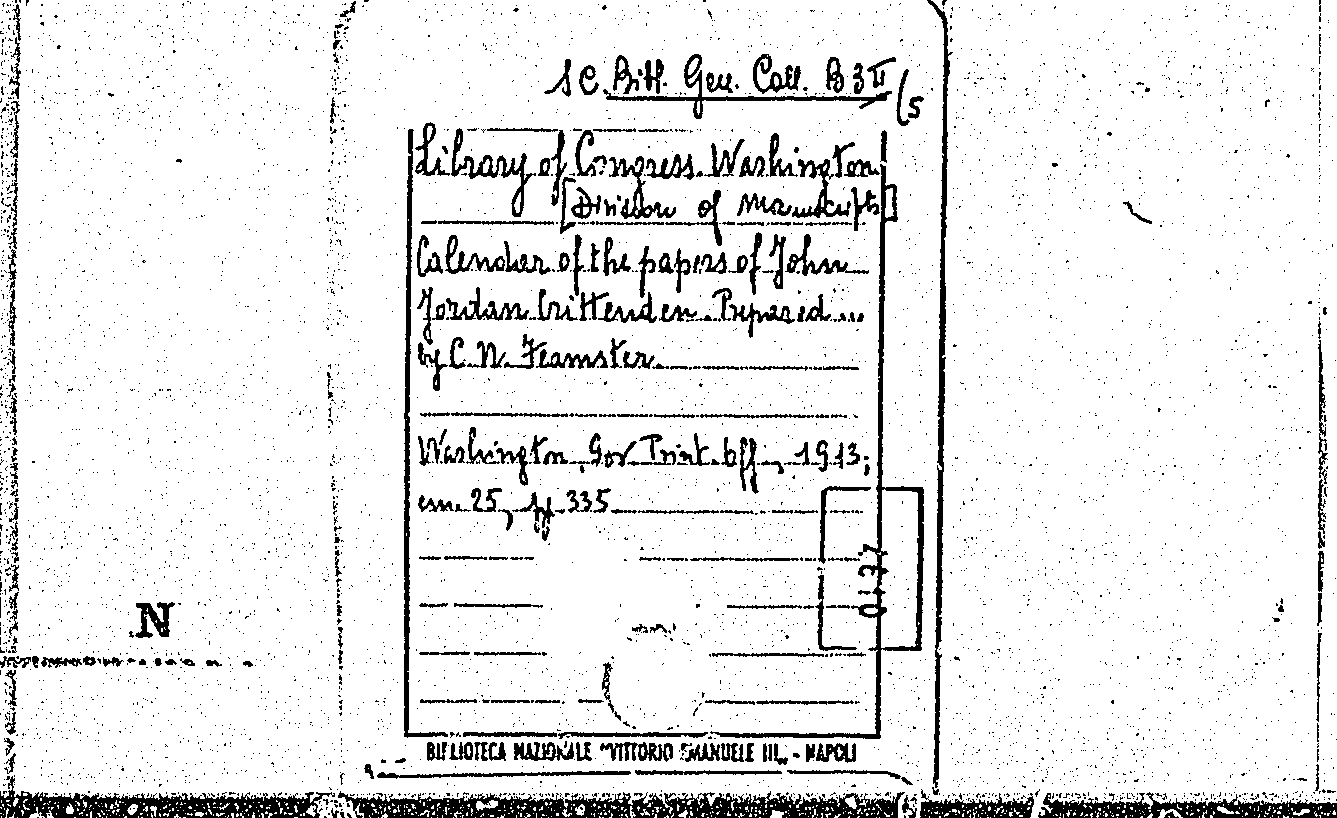 SC. Bibl. Gen. Coll. B 3 II (5
Library of Congress. Washington.
[Division of Manuscripts]
Calendar of the papers of John
Jordan Crittenden. Prepared ...
by C. N. Feamster.
Washington, Gov Print. off., 1913;
cm. 25, pp 335
0137
N
BIBLIOTECA NAZIONALE "VITTORIO EMANUELE III„ - NAPOLI